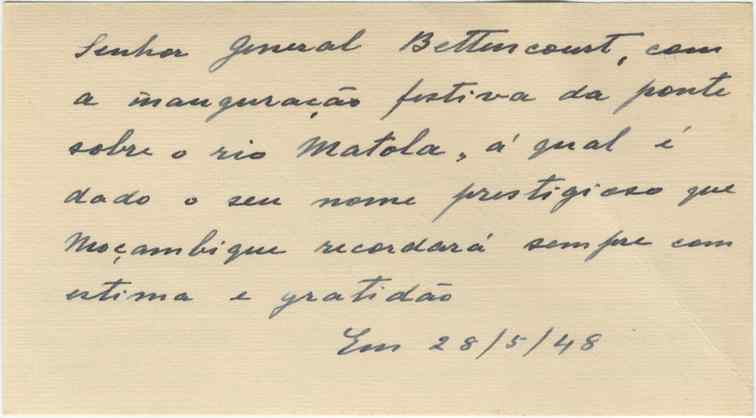 Senhor General Bettencourt, com
a inauguração festiva da ponte
sobre o rio Matola, á qual é
dado o seu nome prestigioso que
Moçambique recordará sempre com
estima e gratidão
Em 28/5/48